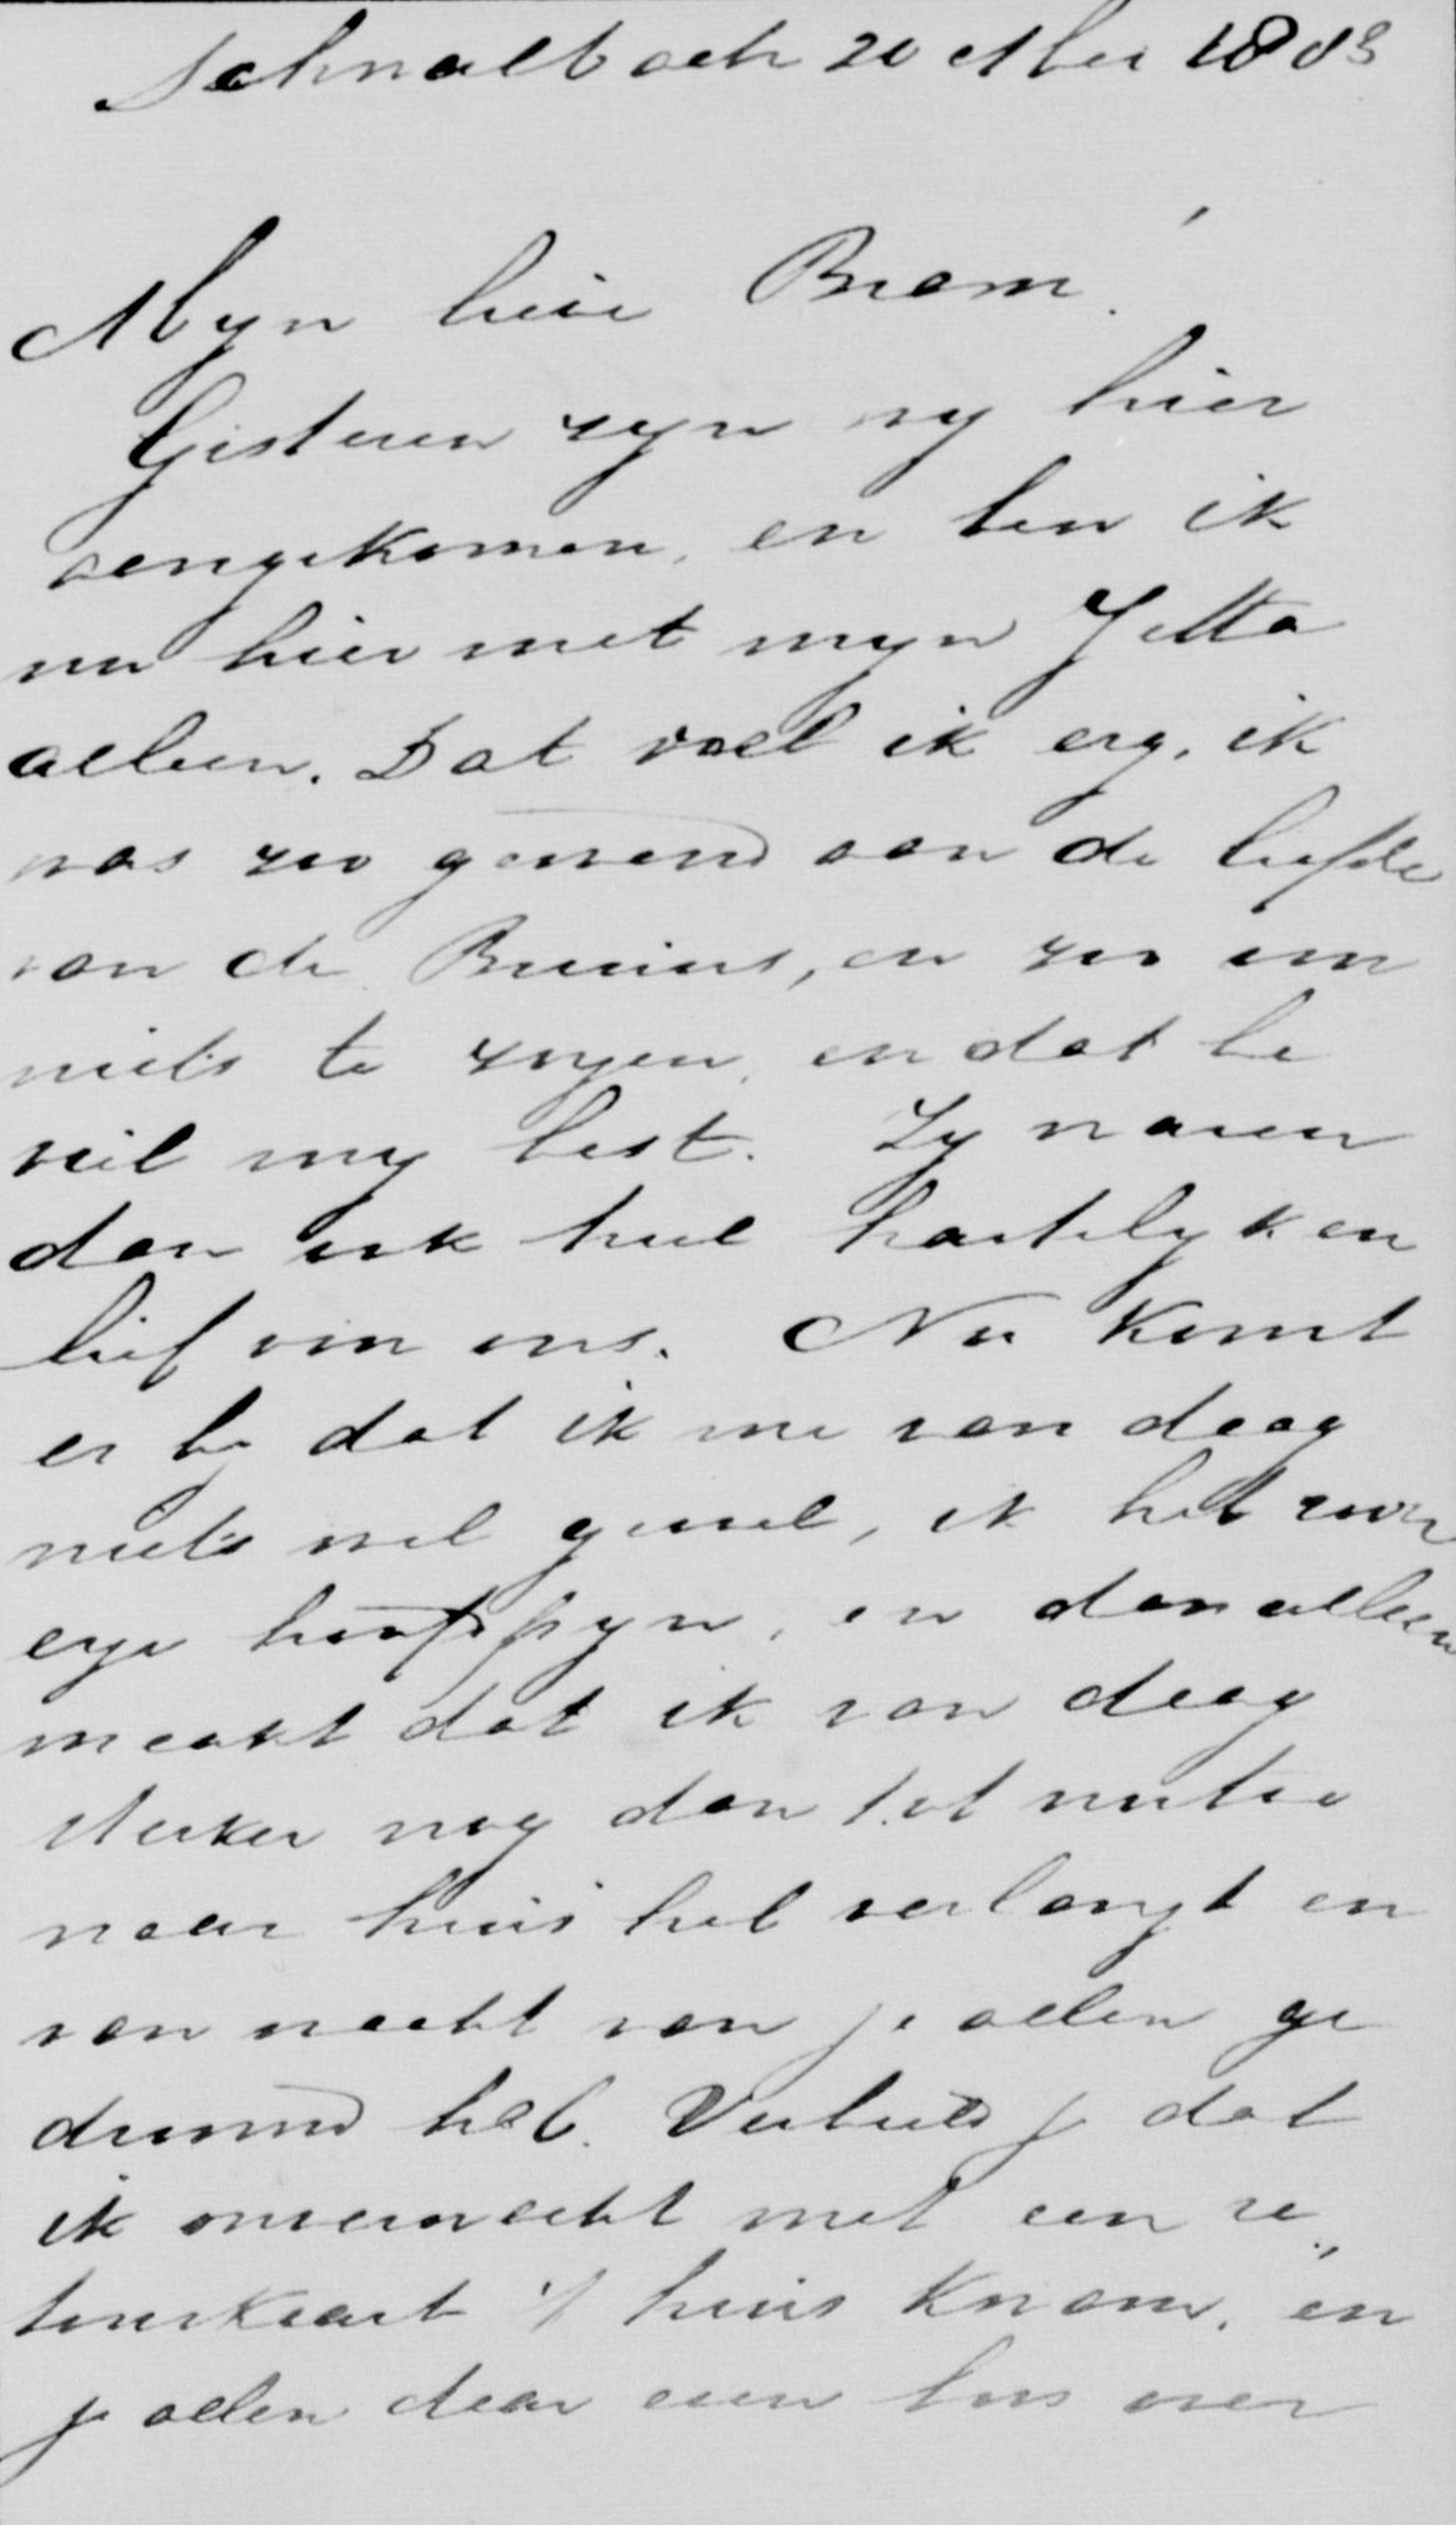 Schwalbach 20 Mei 1883
Myn lieve Bram.
Gisteren zyn wy hier
aengekomen, en ben ik
nu hier met myn Jetta
alleen. Dat voel ik erg, ik
was zoo gewend aan de liefde
van de Bruins, en zoo om
niets te zorgen, en dat be
viel my best. Zy waren
dan ook heel hartelyk en
lief voor ons. Nu komt
er by dat ik me van daag
niets wel gevoel, ik heb zoo'n
erge hoofdpyn, en dan alleen
maakt dat ik van daag
sterker nog dan tot nutoe
naar huis heb verlangt en
van nacht van je allen ge
droomd heb. Verbeeld je dat
ik onverwacht met een re„
tourkaart 't huis kwam, en
je allen daar over hoe